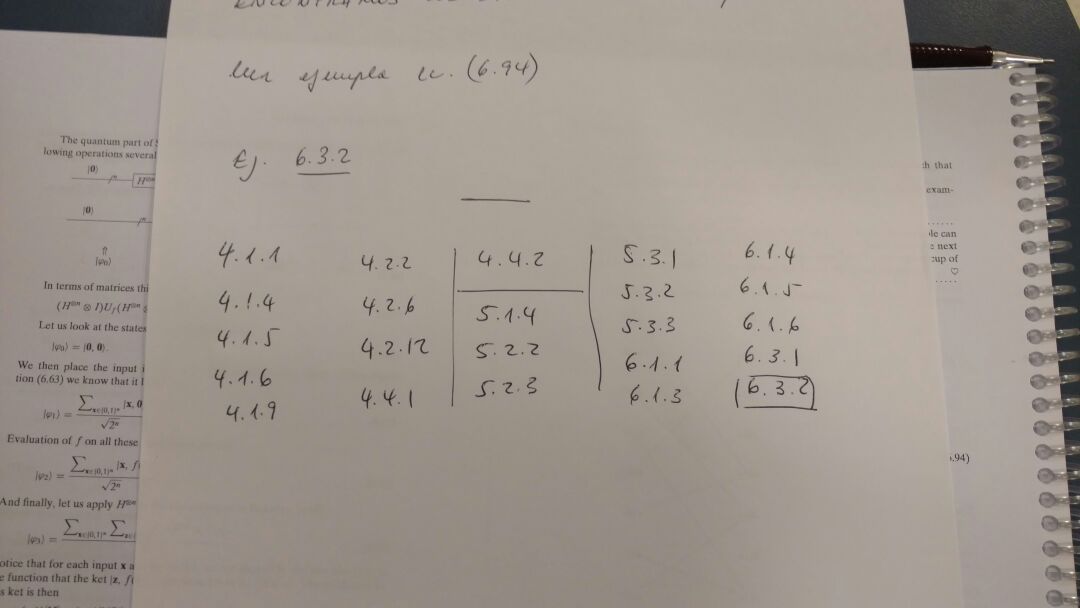 ejemplo ec. (6.94)
Ej. 6.3.2
4.1.1
4.1.4
4.1.5
4.1.6
4.1.9
4.2.2
4.2.6
4.2.12
4.4.1
4.4.2
5.1.4
5.2.2
5.2.3
5.3.1
5.3.2
5.3.3
6.1.1
6.1.3
6.1.4
6.1.5
6.1.6
6.3.1
6.3.2
The quantum part of
lowing operations several
|0⟩
H⊗n
|0⟩
⇑
|φ0⟩
In terms of matrices thi
(H⊗n ⊗ I)Uf(H⊗n
Let us look at the states
|φ0⟩ = |0, 0⟩.
We then place the input i
tion (6.63) we know that it
|φ1⟩ = ∑x∈{0,1}n |x, 0
√2n
Evaluation of f on all these
|φ2⟩ = ∑x∈{0,1}n |x, f(
√2n
And finally, let us apply H⊗n
|φ3⟩ = ∑x∈{0,1}n ∑z∈
otice that for each input x a
e function that the ket |z, f(
s ket is then
th that
exam-
ple can
e next
cup of
♡
.94)